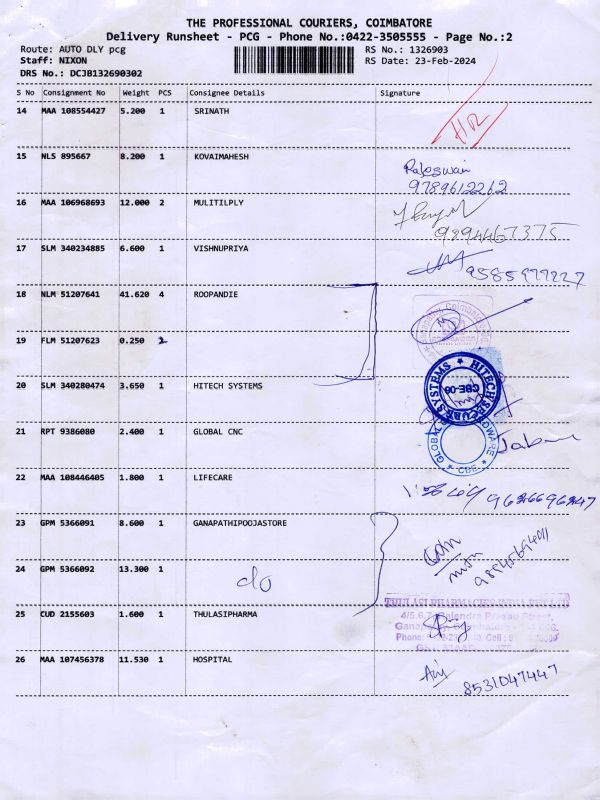 THE PROFESSIONAL COURIERS, COIMBATORE
Delivery Runsheet - PCG - Phone No.:0422-3505555 - Page No.:2
Route: AUTO DLY pcg RS No.: 1326903
Staff: NIXON RS Date: 23-Feb-2024
DRS No.: DCJB132690302
S No Consignment No Weight PCS Consignee Details Signature
14 MAA 108554427 5.200 1 SRINATH
15 NLS 895667 8.200 1 KOVAIMAHESH
Rajeswari
9789612262
16 MAA 106968693 12.000 2 MULITILPLY
9894467375
17 SLM 340234885 6.600 1 VISHNUPRIYA
9585977227
18 NLM 51207641 41.620 4 ROOPANDIE
19 FLM 51207623 0.250 2
20 SLM 340280474 3.650 1 HITECH SYSTEMS
HITECH SECURE SYSTEMS
CBE-08
21 RPT 9386080 2.400 1 GLOBAL CNC
GLOBAL HARDWARE
CBE
22 MAA 108446405 1.800 1 LIFECARE
9626696247
23 GPM 5366091 8.600 1 GANAPATHIPOOJASTORE
24 GPM 5366092 13.300 1
do
25 CUD 2155603 1.600 1 THULASIPHARMA
THULASI PHARMACIES INDIA PVT LTD
4/5,6,7, Rajendra Prasad Street,
26 MAA 107456378 11.530 1 HOSPITAL
8531047447